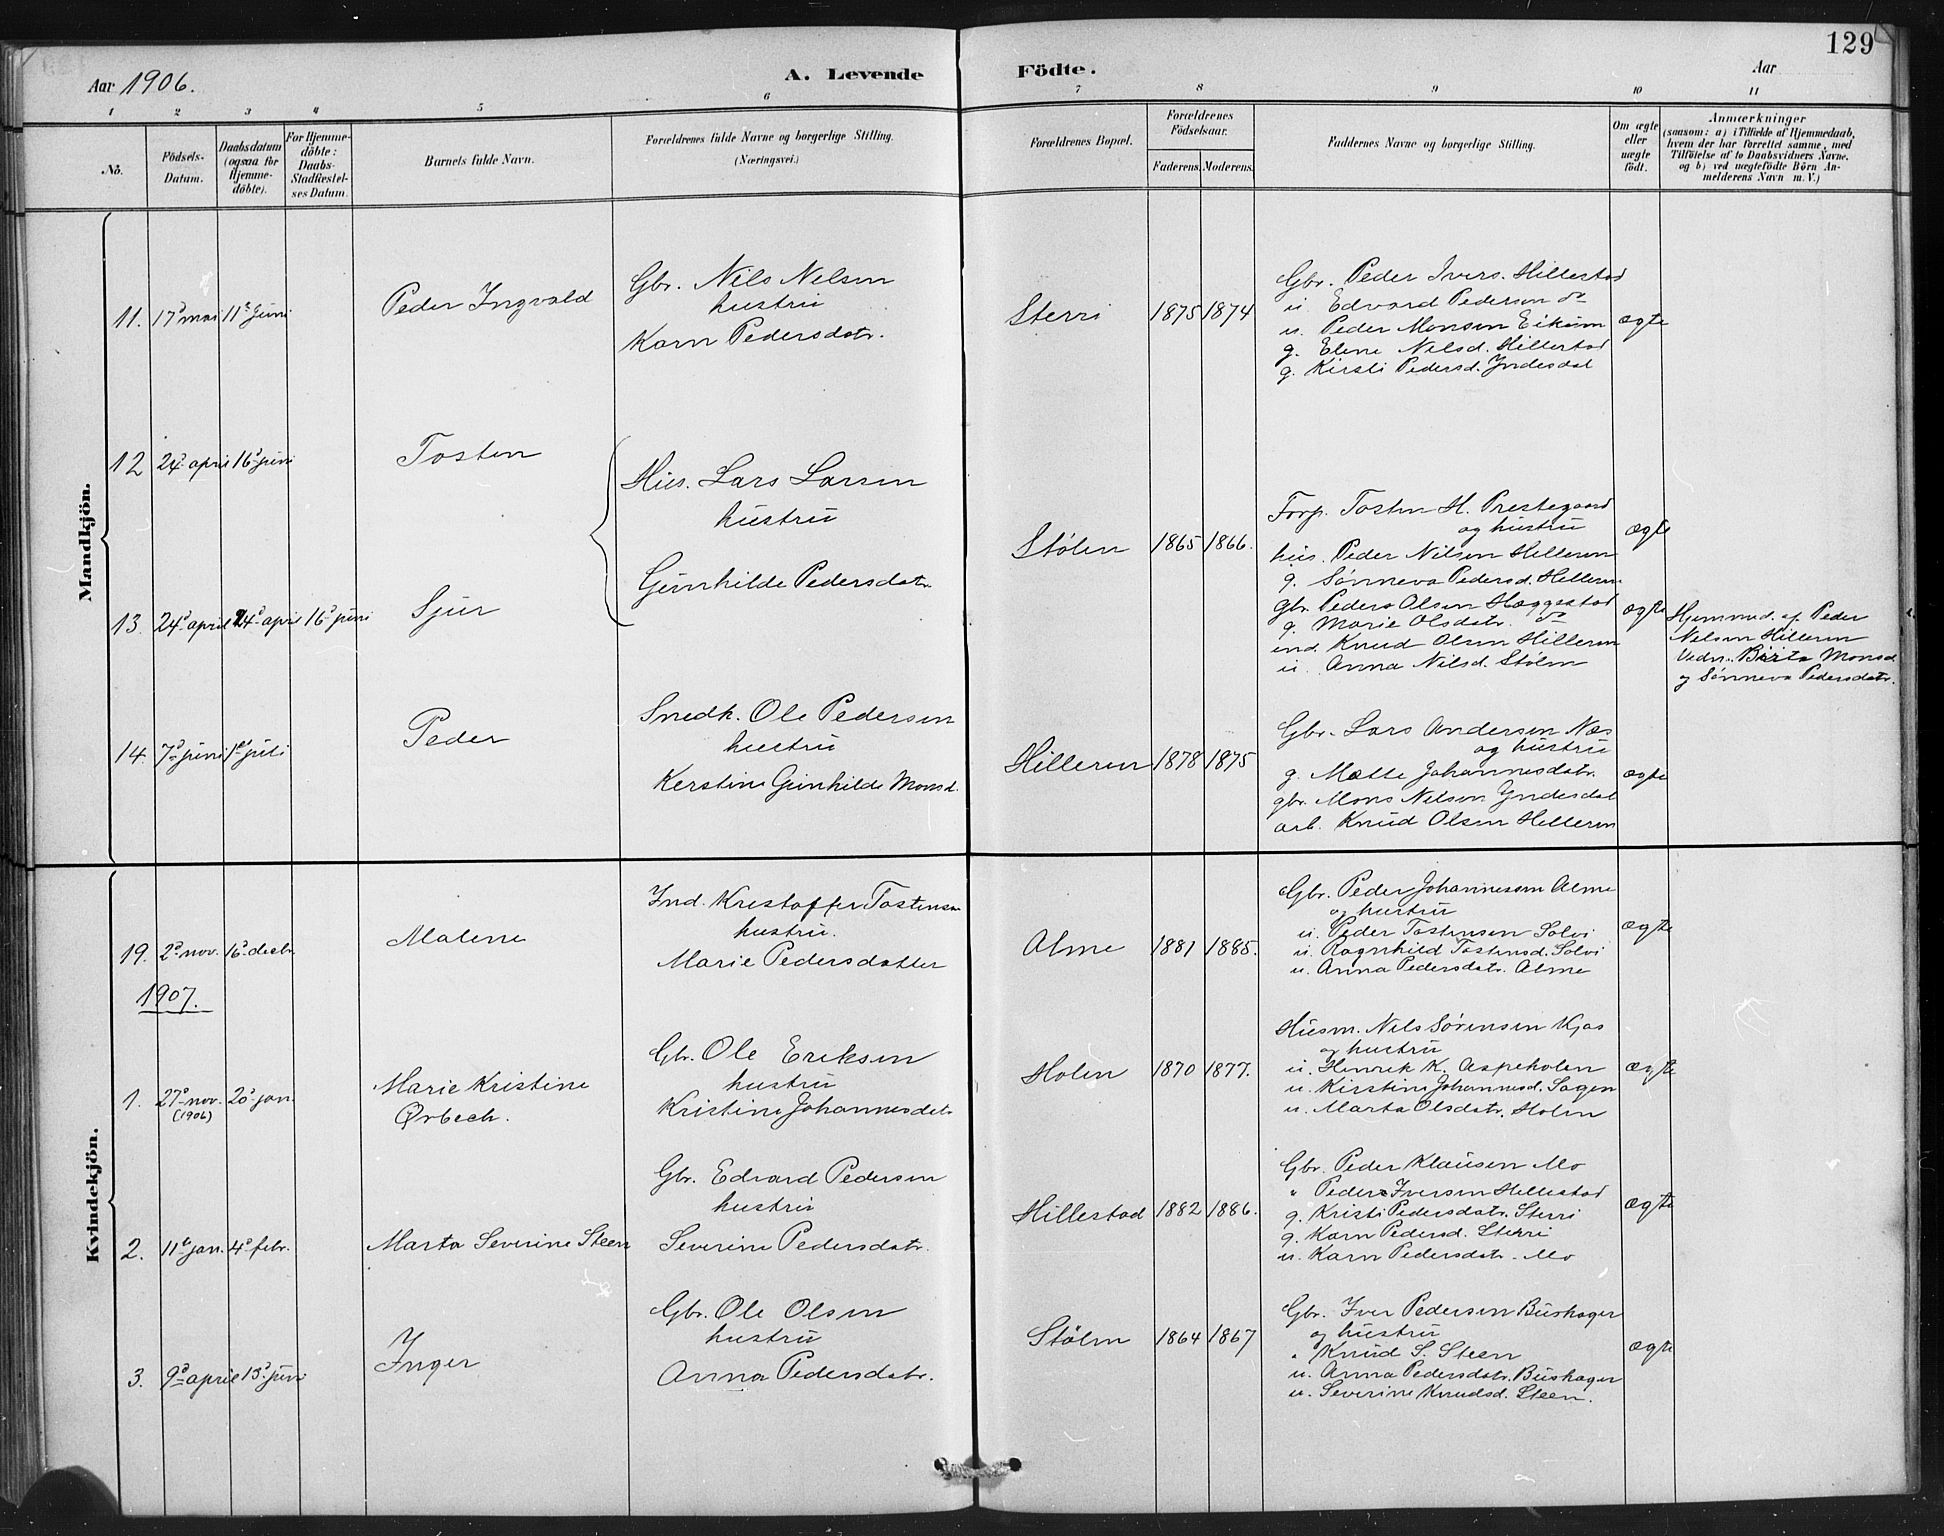 129
Aar 1906.
A. Levende Födte.
Aar
1 2 3 4 5 6 7 8 9 10 11
No.
Födsels-
Datum.
Daabsdatum
(ogsaa for
Hjemme-
döbte).
For Hjemme-
döbte:
Daabs-
Stadfæstel-
ses Datum.
Barnets fulde Navn.
Forældrenes fulde Navne og borgerlige Stilling.
(Næringsvei.)
Forældrenes Bopæl.
Forældrenes
Födselsaar.
Faderens. Moderens.
Faddernes Navne og borgerlige Stilling.
Om ægte
eller
uægte
født.
Anmærkninger
(saasom: a) i Tilfælde af Hjemmedaab,
hvem der har forrettet samme, med
Tilföielse af to Daabsvidners Navne,
og b) ved uægtefödte Börn An-
melderens Navn m. V.)
Mandkjön.
11. 17de mai 11te juni
Peder Ingvald
Gbr. Nils Nilsen
hustru
Karn Pedersdatr.
Sterri
1875 1874
Gbr. Peder Ivers. Hillestad
u. Edvard Pedersen do
u. Peder Monsen Eikum
g. Eline Nilsd. Hillestad
g. Kirsti Pedersd. Yndesdal
ægte
12 24de april 16de juni
Tosten
Hus. Lars Larsen
hustru
Gunhilde Pedersdatr.
Stølen
1865 1866.
Forp. Tosten H. Prestegaard
og hustru
hus. Peder Nilsen Hilleren
g. Sønneva Pedersd. Hilleren
gbr. Peder Olsen Hæggestad
g. Marie Olsdatr. do
ind. Knud Olsen Hilleren
u. Anna Nilsd. Stølen
ægte
13. 24de april 24de april 16de juni
Sjur
ægte
Hjemmed. af Peder
Nilsen Hilleren
Vidn. Birta Monsd.
og Sønneva Pedersdatr.
14 7de juni 1ste juli
Peder
Snedk. Ole Pedersen
hustru
Kerstine Gunhilde Monsd.
Hilleren
1878 1875
Gbr. Lars Andersen Næs
og hustru
g. Mætte Johannesdatr.
gbr. Mons Nilsen Yndesdal
arb. Knud Olsen Hilleren
ægte
Kvindekjön.
19. 2de nov. 16de decbr.
Malene
Ind. Kristoffer Tostensen
hustru.
Marie Pedersdatter
Alme
1881 1885.
Gbr. Peder Johannesen Alme
og hustru
u. Peder Tostensen Solvi
u. Ragnhild Tostensd. Solvi
u. Anna Pedersdatr. Alme
ægte
1907.
1. 27de nov. 20de jan.
(1906)
Marie Kristine
Ørbech.
Gbr. Ole Eriksen
hustru
Kristine Johannesdatr.
Holen
1870 1877.
Husm. Nils Sørensen Kjos
og hustru
u. Henrik K. Aspeholen
u. Kirstine Johannesd. Sagen
u. Marta Olsdatr. Holen
ægte
2. 11te jan. 4de febr.
Marta Severine Steen
Gbr. Edvard Pedersen
hustru
Severine Pedersdatr.
Hillestad
1882 1886.
Gbr. Peder Klausen Mo
" Peder Iversen Hillestad
g. Kristi Pedersdatr. Sterri
g. Karn Pedersd. Sterri
u. Karn Pedersdatr. Mo
ægte
3. 9de april 13de juni
Inger
Gbr. Ole Olsen
hustru
Anna Pedersdatr.
Stølen
1864 1867
Gbr. Iver Pedersen Buskager
og hustru
" Knud S. Steen
u. Anna Pedersdatr. Buskager
u. Severine Knudsd. Steen.
ægte